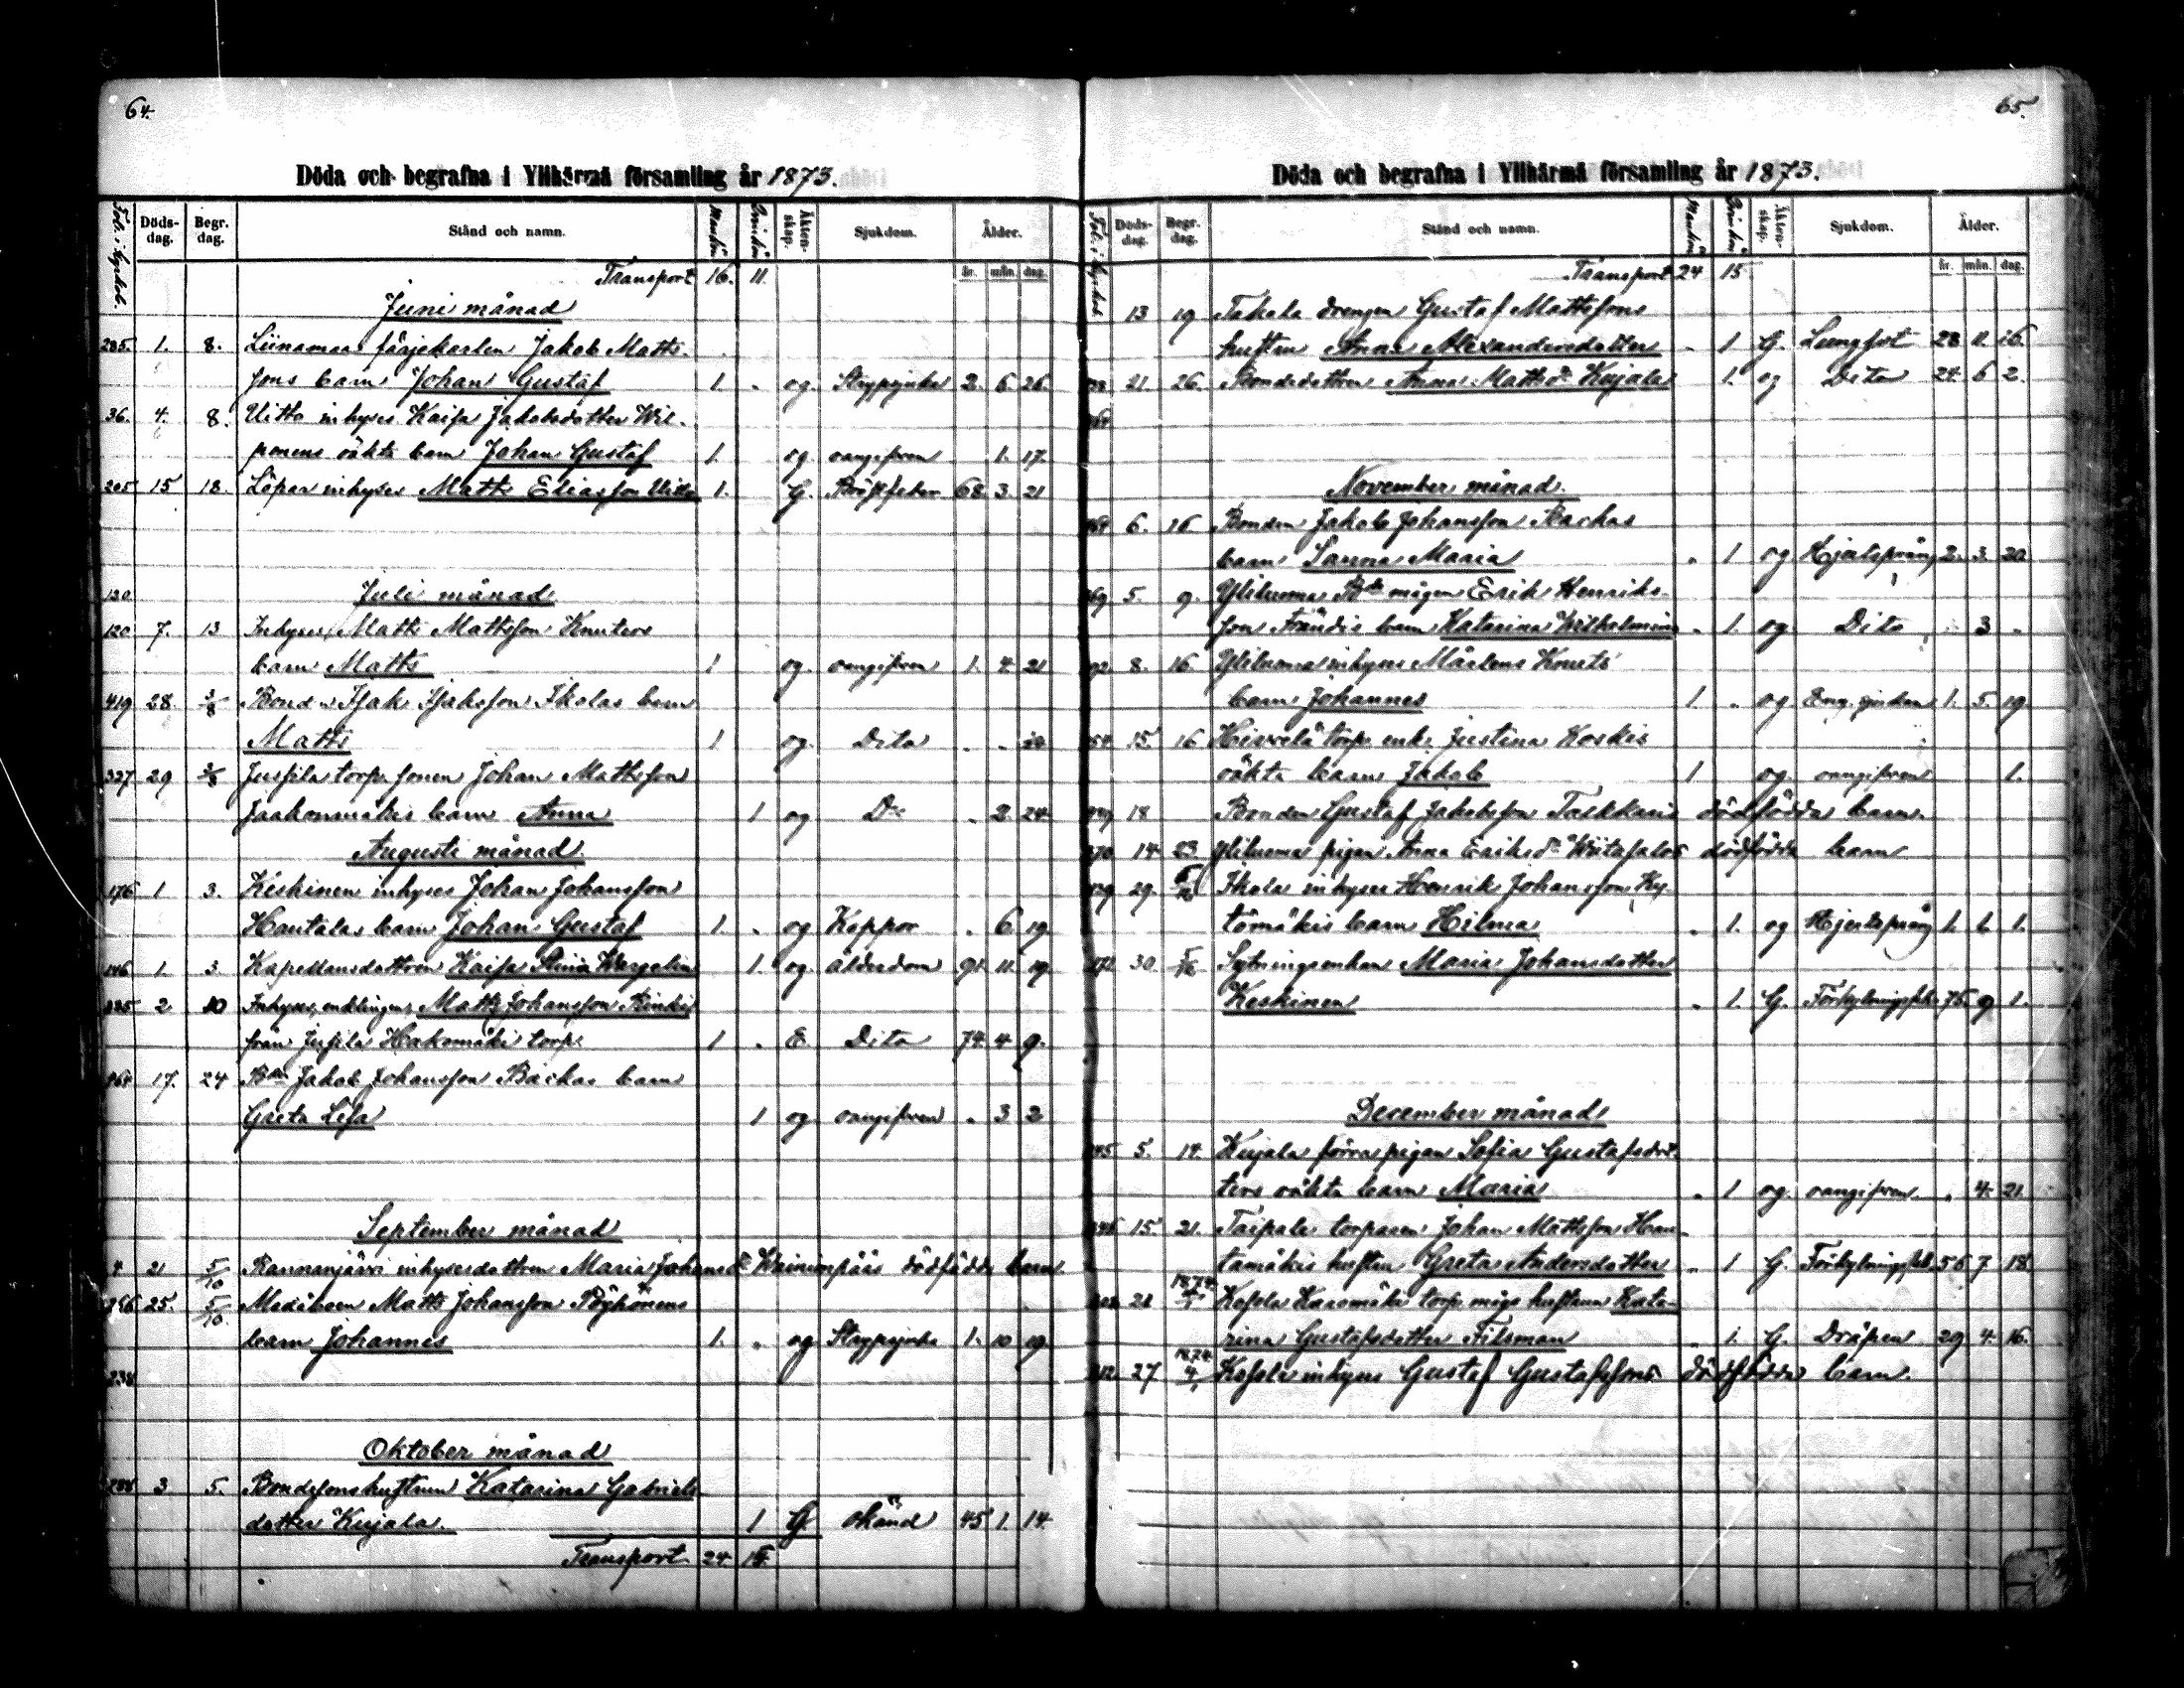 64.
Döda och begrafna i Ylihärmä församling år 1873.
Fol. i kyrkob. Döds-dag. Begr. dag. Stånd och namn. Mankön Qvinkön Äkten-skap. Sjukdom. Ålder.
år. mån. dag.
Transport 16. 11
Juni månad
285. 1. 8. Liinamaa färjekarlen Jakob Matts-
sons barn Johan Gustaf 1. " og. Strypsjuka 2. 6 26
36. 4. 8. Uitto inhyses Kaisa Jakobsdotter Wil-
ponens oäkta barn Johan Gustaf 1. og. oangifven 1. 17.
205 15 18. Löpar inhyses Matts Eliasson Uitto 1. G. Bröstfeber 68. 3. 21
Juli månad
120
120 7. 13 Inhyses Matts Mattsson Knuters
barn Matts 1 og. oangifven 1. 4 21
419 28. 3/8 Bonden Isak Isaksson Ikolas barn
Matts 1 og. Dito . .
327 29 3/8 Jussila torp. sonen Johan Mattsson
Jaakonmäkis barn Anna 1 og Do . 2. 24
Augusti månad
176 1 3. Keskinen inhyses Johan Johansson
Hantalas barn Johan Gustaf 1. " og Koppor . 6 19
146 1 3. Kapellansdottren Kaisa Stina Wargelin 1. og ålderdom 91. 11. 19.
335 2 10 Inhyses enklingen Matts Johansson
från Jussila Hakomäki torp. 1 " E. Dito 74. 4 9.
17. 24 Bdn Jakob Johansson Backas barn
Greta Lisa 1 og oangifven . 3 2
September månad
4 21 5/10 Rannanjärvi inhysesdottren Maria Johansdr Wainionpääs dödfödda barn
25. 5/10 Matts Johansson Pöyhönens
barn Johannes 1. " og Strypsjuka 1. 10 19.
238
Oktober månad
238 3 5. Bondesonshustrun Katarina Gabriels
dotter Kujala. 1 G. okänd 45 1. 14
Transport 24. 15.
65.
Döda och begrafna i Ylihärmä församling år 1873.
Fol. i kyrkob. Döds-dag. Begr. dag. Stånd och namn. Mankön Qvinkön Äkten-skap. Sjukdom. Ålder.
år. mån. dag.
Transport 24 15
13 19 Takala drengen Gustaf Mattssons
hustru Anna Alexandersdotter " 1 G. Lungsot 28 11 16
21. 26. Bondedottren Anna Mattsdr Kujala 1. og Dito 24. 6 2.
November månad
6. 16 Bonden Jakob Johansson Backas
barn Sanna Maria " 1 og Hjertsprång 2. 3. 20
5. 9. Yliluoma Bde mågen Erik Henriks-
son Frändis barn Katarina Wilhelmina " 1. og Dito . 3 .
92 8. 16 Yliluoma inhyses Mårtens Knuts
barn Johannes 1 " og Eng. sjukan 1. 5. 19.
54 15. 16 Hirvelä torp. enk. Justina Koskis
oäkta barn Jakob 1 og. oangifven 1.
18 Bonden Gustaf Jakobsson Taskkaris dödfödda barn.
14 23 Yliluoma pigan Anna Eriksdr dödfödda barn
29. 5/12 Ikola inhyses Henrik Johansson Ky-
tömäkis barn Hilma " 1. og Hjertsprång 1. 6 1.
30 5/12 Sytningsenkan Maria Johansdotter
Keskinen " 1. G. Förkylningsfeb. 75. 9 1.
December månad
5. 14. Kujala förra pigan Sofia Gustafsdot-
ters oäkta barn Maria " 1 og. oangifven . 4. 21
15. 21. Taipale torparen Johan Mattsson Han-
tamäkis hustru Greta Andersdotter " 1 G. Förkylningsfeb. 56 7 18.
1874
Kosola Karomäki torp. mågs hustrun Kata-
rina Gustafsdotter Filsman 1. G. Dråpen 29 4. 16.
1874
27 4/1 Kosola inhyses Gustaf Gustafssons dödfödda barn.